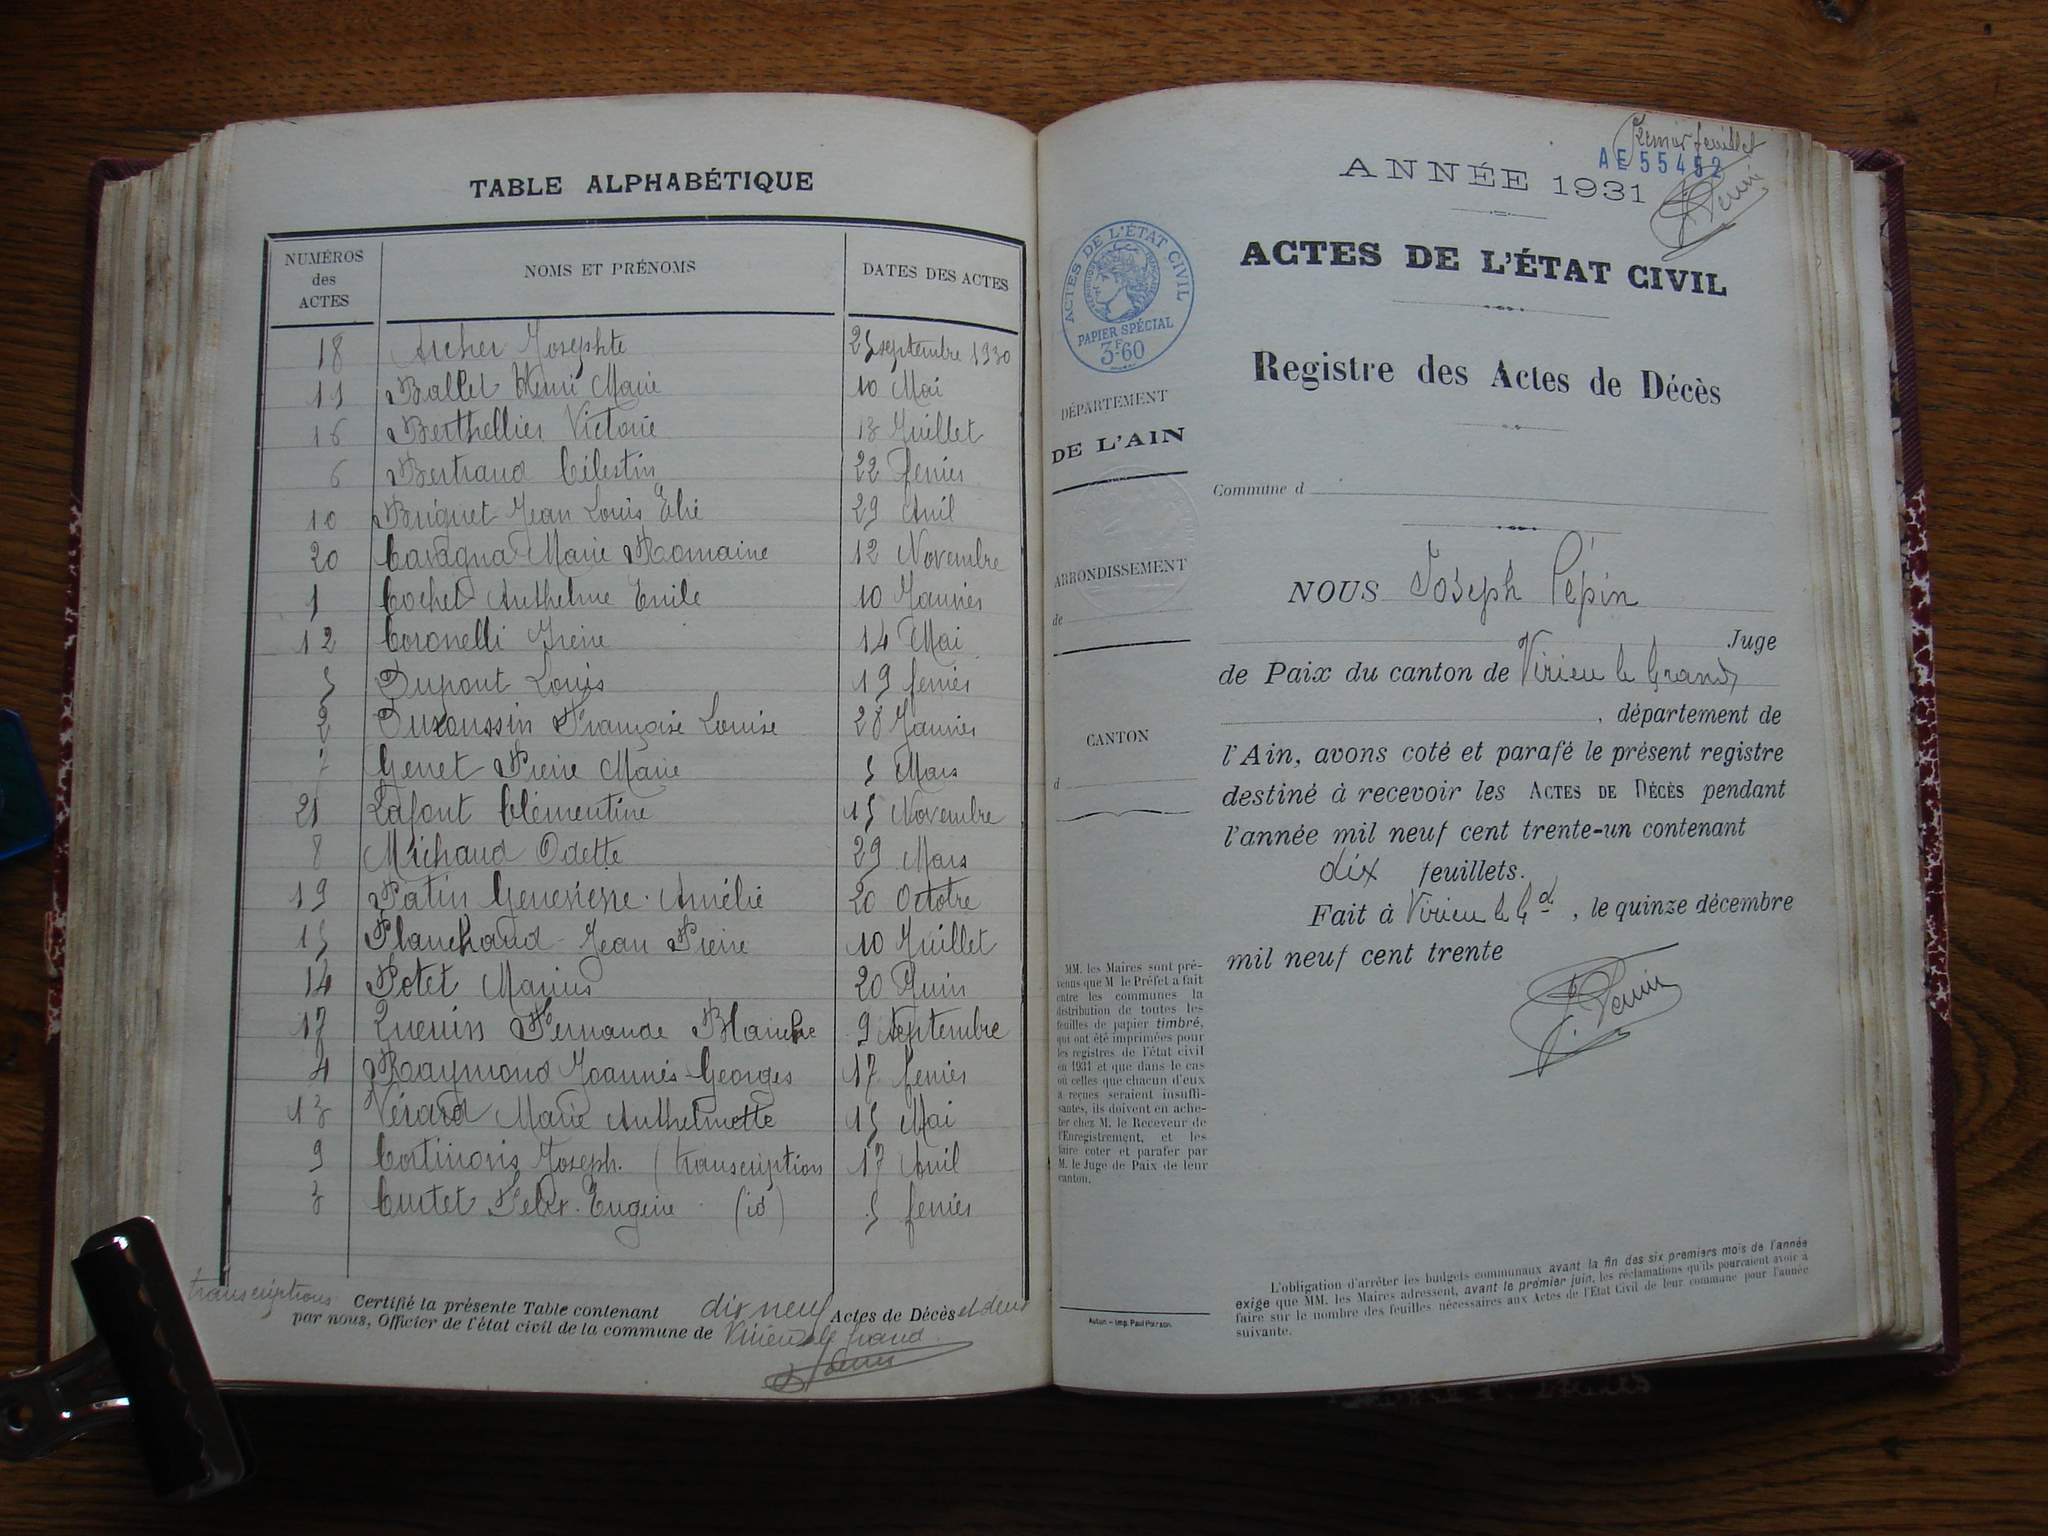 TABLE ALPHABÉTIQUE
NUMÉROS des ACTES NOMS ET PRÉNOMS DATES DES ACTES
18 Archer Josephte 25 septembre 1930
11 Ballet Henri Marie 10 Mai
16 Berthellier Victorie 18 Juillet
6 Bertrand Célestin 22 fevrier
10 Briguet Jean Louis Elie 29 Avril
20 Cavagna Marie Romaine 12 Novembre
1 Cochet Anthelme Emile 10 Janvier
12 Coronelli Irène 14 Mai
5 Dupont Louis 19 fevrier
2 Françoise Louise 28 Janvier
7 Genet Pierre Marie 5 Mars
21 Lafont Clémentine 15 Novembre
8 Michaud Odette 29 Mars
19 Patin Geneviève Amélie 20 Octobre
15 Planchand Jean Pierre 10 Juillet
14 Potet Marius 20 Juin
17 Quenin Fernande Blanche 9 Septembre
4 Raymond Joannès Georges 17 fevrier
13 Vérard Marie Anthelmette 15 Mai
9 Joseph. (transcription 17 Avril
3 Curtet Felix Eugène (id) 5 fevrier
transcriptions Certifié la présente Table contenant dix neuf Actes de Décès et deux
par nous, Officier de l'état civil de la commune de Virieu le grand
Premier feuillet
AE 55452
ANNÉE 1931
J. Pépin
ACTES DE L'ÉTAT CIVIL
ACTES DE L'ÉTAT CIVIL
RÉPUBLIQUE FRANÇAISE
PAPIER SPÉCIAL
3F60
Registre des Actes de Décès
DÉPARTEMENT
DE L'AIN
Commune d
ARRONDISSEMENT
de
CANTON
d
NOUS Joseph Pépin
Juge
de Paix du canton de Virieu le Grand
, département de
l'Ain, avons coté et parafé le présent registre
destiné à recevoir les ACTES DE DÉCÈS pendant
l'année mil neuf cent trente-un contenant
dix feuillets.
Fait à Virieu le Gd , le quinze décembre
mil neuf cent trente
J. Pépin
MM. les Maires sont pré-
venus que M le Préfet a fait
entre les communes la
distribution de toutes les
feuilles de papier timbré,
qui ont été imprimées pour
les registres de l'état civil
en 1931 et que dans le cas
où celles que chacun d'eux
a reçues seraient insuffi-
santes, ils doivent en ache-
ter chez M. le Receveur de
l'Enregistrement, et les
faire coter et parafer par
M. le Juge de Paix de leur
canton.
Autun - Imp. Paul Poirson.
L'obligation d'arrêter les budgets communaux avant la fin des six premiers mois de l'année
exige que MM. les Maires adressent, avant le premier juin, les réclamations qu'ils pourraient avoir à
faire sur le nombre des feuilles nécessaires aux Actes de l'État Civil de leur commune pour l'année
suivante.